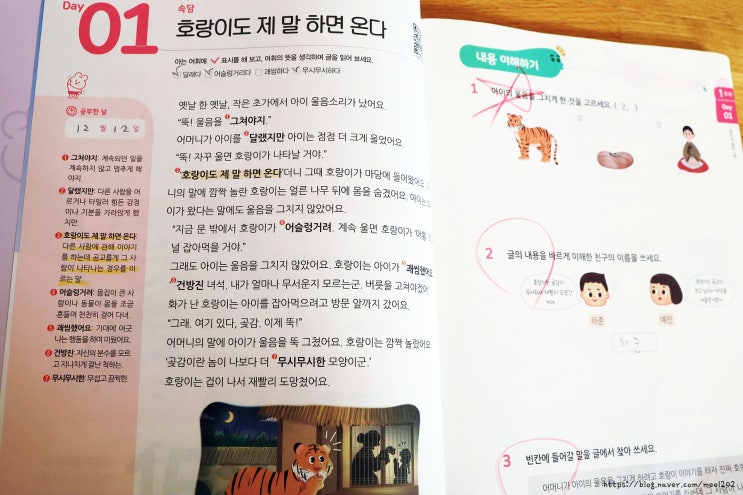 Day
01
속담
호랑이도 제 말 하면 온다
아는 어휘에 ✓ 표시를 해 보고, 어휘의 뜻을 생각하며 글을 읽어 보세요.
달래다 어슬렁거리다 괘씸하다 무시무시하다
공부한 날
12월 12일
1 그쳐야지: 계속되던 일을
계속하지 않고 멈추게 해
야지.
2 달랬지만: 다른 사람을 어
르거나 타일러 힘든 감정
이나 기분을 가라앉게 했
지만.
3 호랑이도 제 말 하면 온다:
다른 사람에 관해 이야기
를 하는데 공교롭게 그 사
람이 나타나는 경우를 이
르는 말.
4 어슬렁거려: 몸집이 큰 사
람이나 동물이 몸을 조금
흔들며 천천히 걸어 다녀.
5 괘씸했어요: 기대에 어긋
나는 행동을 하여 미웠어요.
6 건방진: 자신의 분수를 모르
고 지나치게 잘난 척하는.
7 무시무시한: 무섭고 끔찍한.
옛날 한 옛날, 작은 초가에서 아이 울음소리가 났어요.
“뚝! 울음을 1그쳐야지.”
어머니가 아이를 2달랬지만 아이는 점점 더 크게 울었어요.
“뚝! 자꾸 울면 호랑이가 나타날 거야.”
‘3호랑이도 제 말 하면 온다’더니 그때 호랑이가 마당에 들어왔어요.
니의 말에 깜짝 놀란 호랑이는 얼른 나무 뒤에 몸을 숨겼어요. 아이는
이가 왔다는 말에도 울음을 그치지 않았어요.
“지금 문 밖에서 호랑이가 4어슬렁거려. 계속 울면 호랑이가 ‘어흥’
널 잡아먹을 거야.”
그래도 아이는 울음을 그치지 않았어요. 호랑이는 아이가 5괘씸했어요
‘6건방진 녀석. 내가 얼마나 무서운지 모르는군. 버릇을 고쳐야겠어
화가 난 호랑이는 아이를 잡아먹으려고 방문 앞까지 갔어요.
“그래. 여기 있다, 곶감. 이제 뚝!”
어머니의 말에 아이가 울음을 뚝 그쳤어요. 호랑이는 깜짝 놀랐어요
‘곶감이란 놈이 나보다 더 7무시무시한 모양이군.’
호랑이는 겁이 나서 재빨리 도망쳤어요.
내용 이해하기
1주차
Day
01
1 아이의 울음을 그치게 한 것을 고르세요. ( 2 )
2 글의 내용을 바르게 이해한 친구의 이름을 쓰세요.
하준
예인
하준
3 빈칸에 들어갈 말을 글에서 찾아 쓰세요.
어머니가 아이의 울음을 그치게 하려고 호랑이 이야기를 하자 진짜 호
https://blog.naver.com/meel202